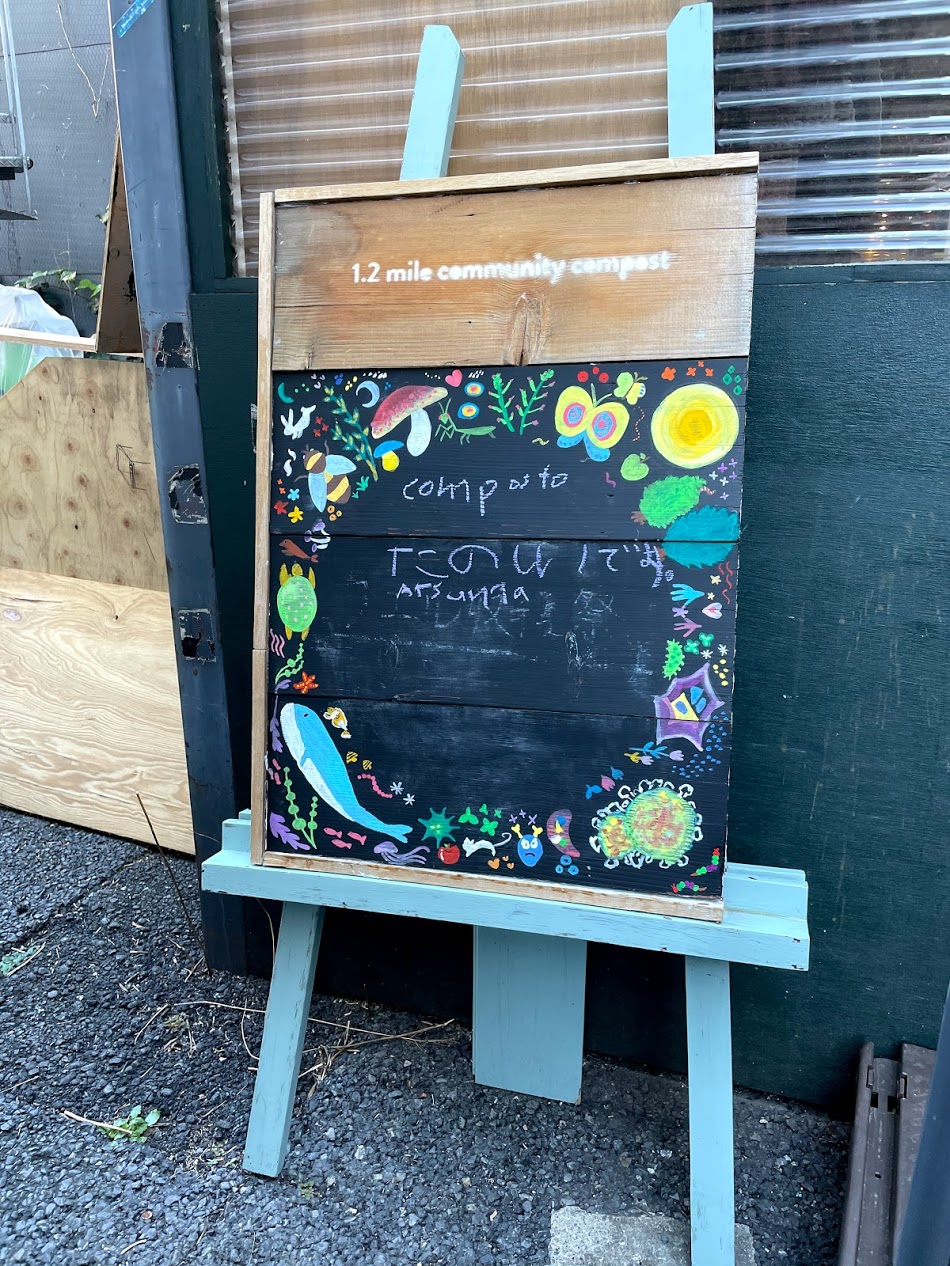 1.2 mile community compost
composto
たのしいです。